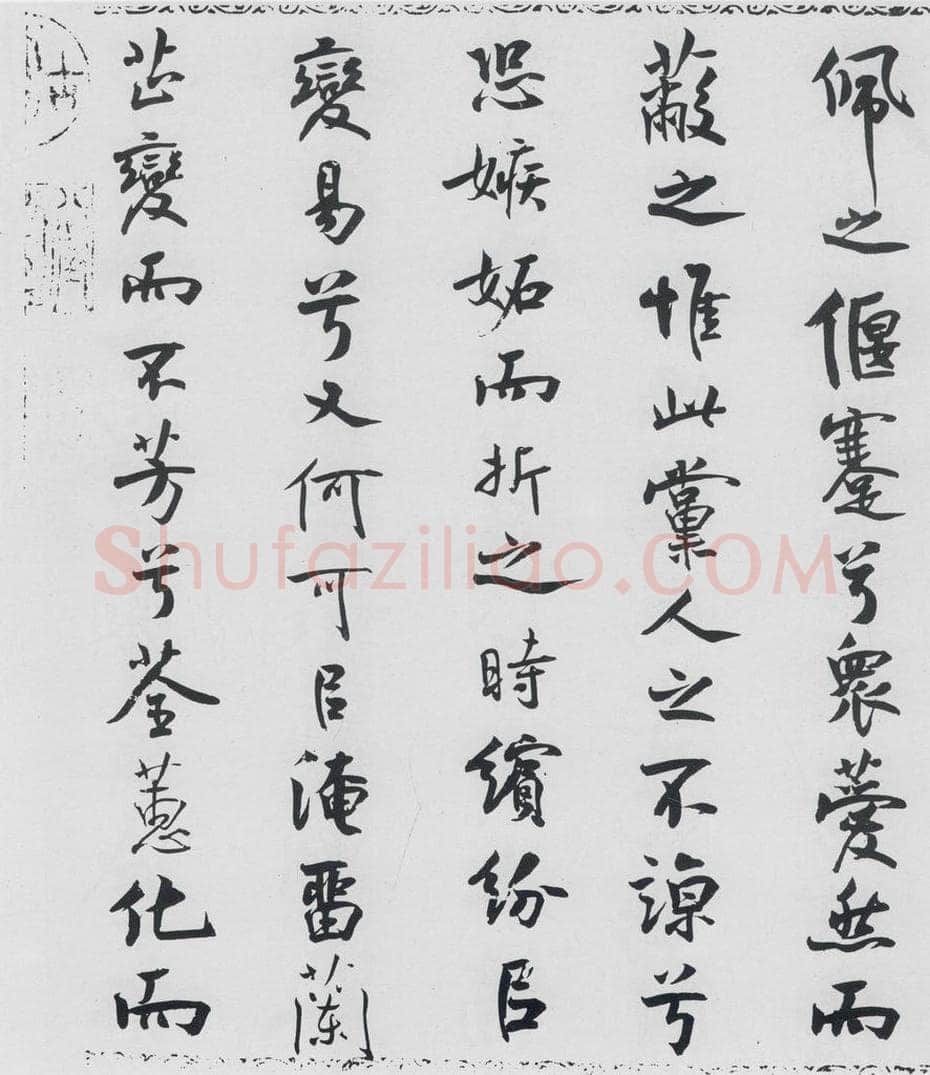 佩之偃蹇兮衆薆然而
蔽之惟此黨人之不諒兮
恐嫉妒而折之時繽紛㠯
變易兮又何可㠯淹留蘭
芷變而不芳兮荃蕙化而
Shufaziliao.COM